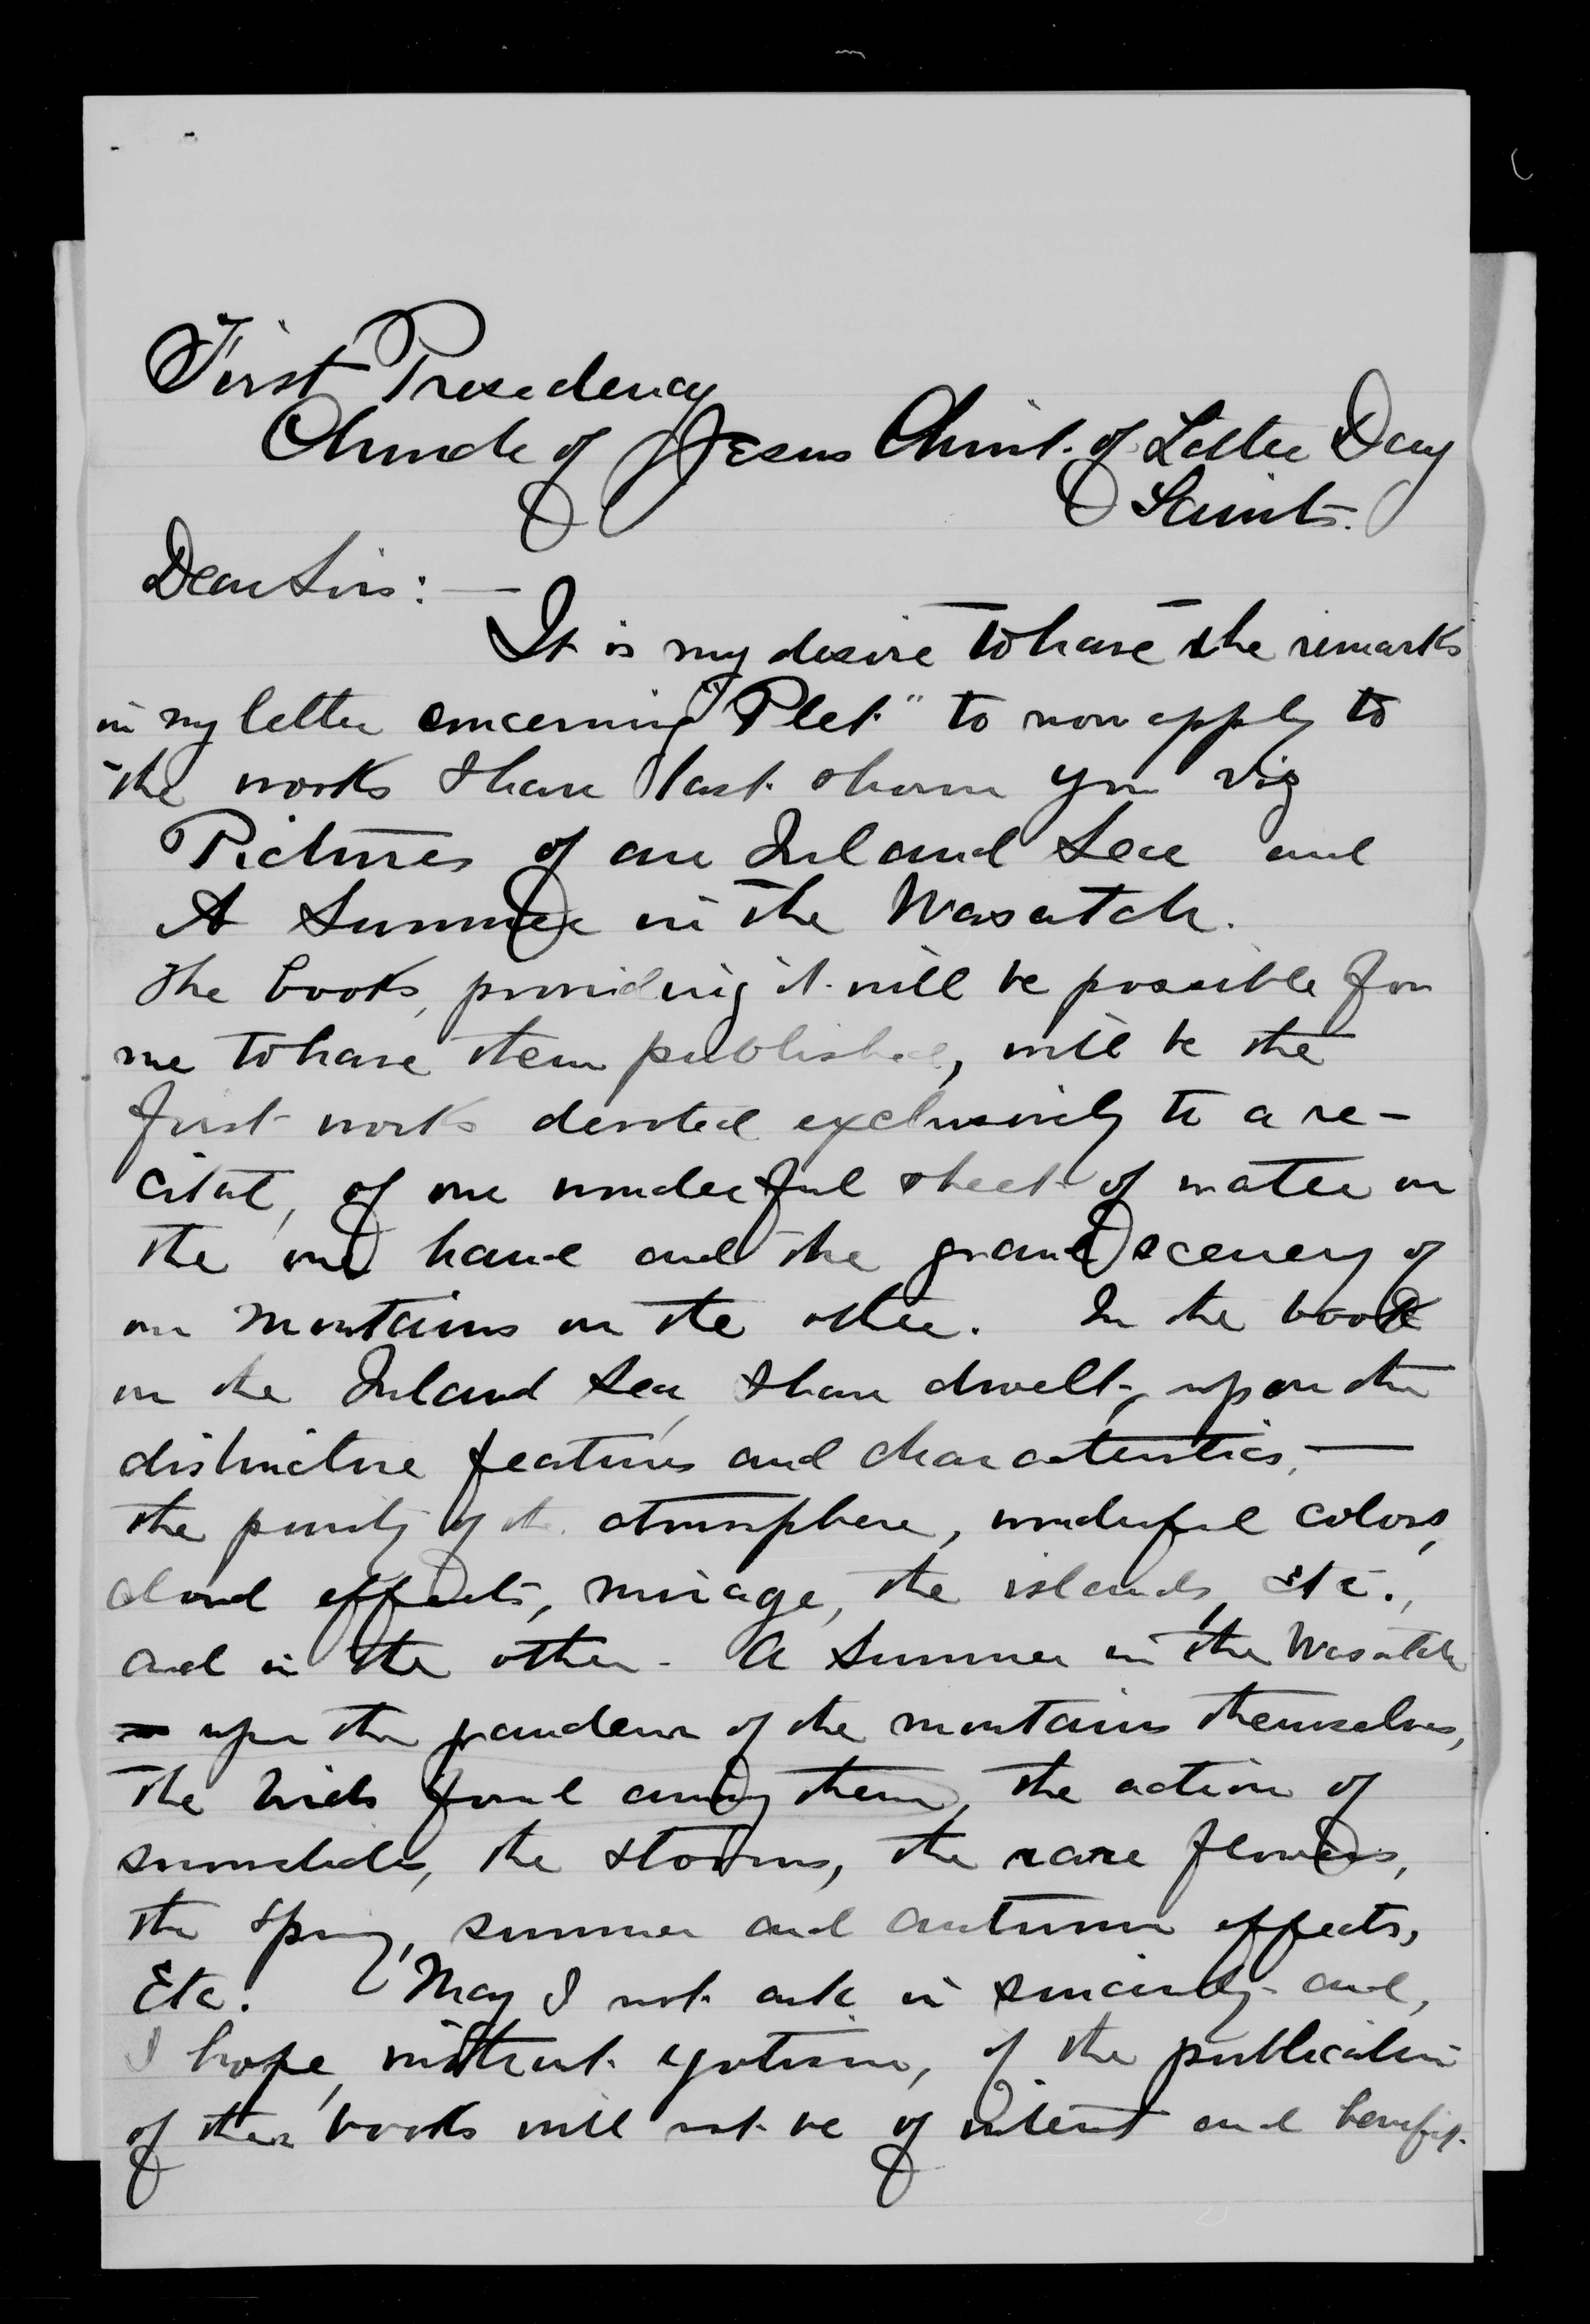 First Presidency
Church of Jesus Christ of Latter Day
Saints.
Dear Sirs: —
It is my desire to have the remarks
in my letter concerning "Plet" to now apply to
the works I have last shown you viz
Pictures of an Inland Sea and
A Summer in the Wasatch.
The books, providing it will be possible for
me to have them published, will be the
first works devoted exclusively to a re-
cital, of our wonderful sheet of water on
the one hand and the grand scenery of
our mountains on the other. In the book
on the Inland Sea, I have dwelt, upon the
distinctive features and characteristics, —
the purity of the atmosphere, wonderful colors,
cloud effects, mirage, the islands, etc.,
and in the other - A Summer in the Wasatch
upon the grandeur of the mountains themselves,
the birds found among them, the action of
snowslides, the storms, the rare flowers,
the spring, summer and autumn effects,
Etc. May I not ask in sincerity and,
I hope, without egotism, if the publication
of these books will not be of interest and benefit